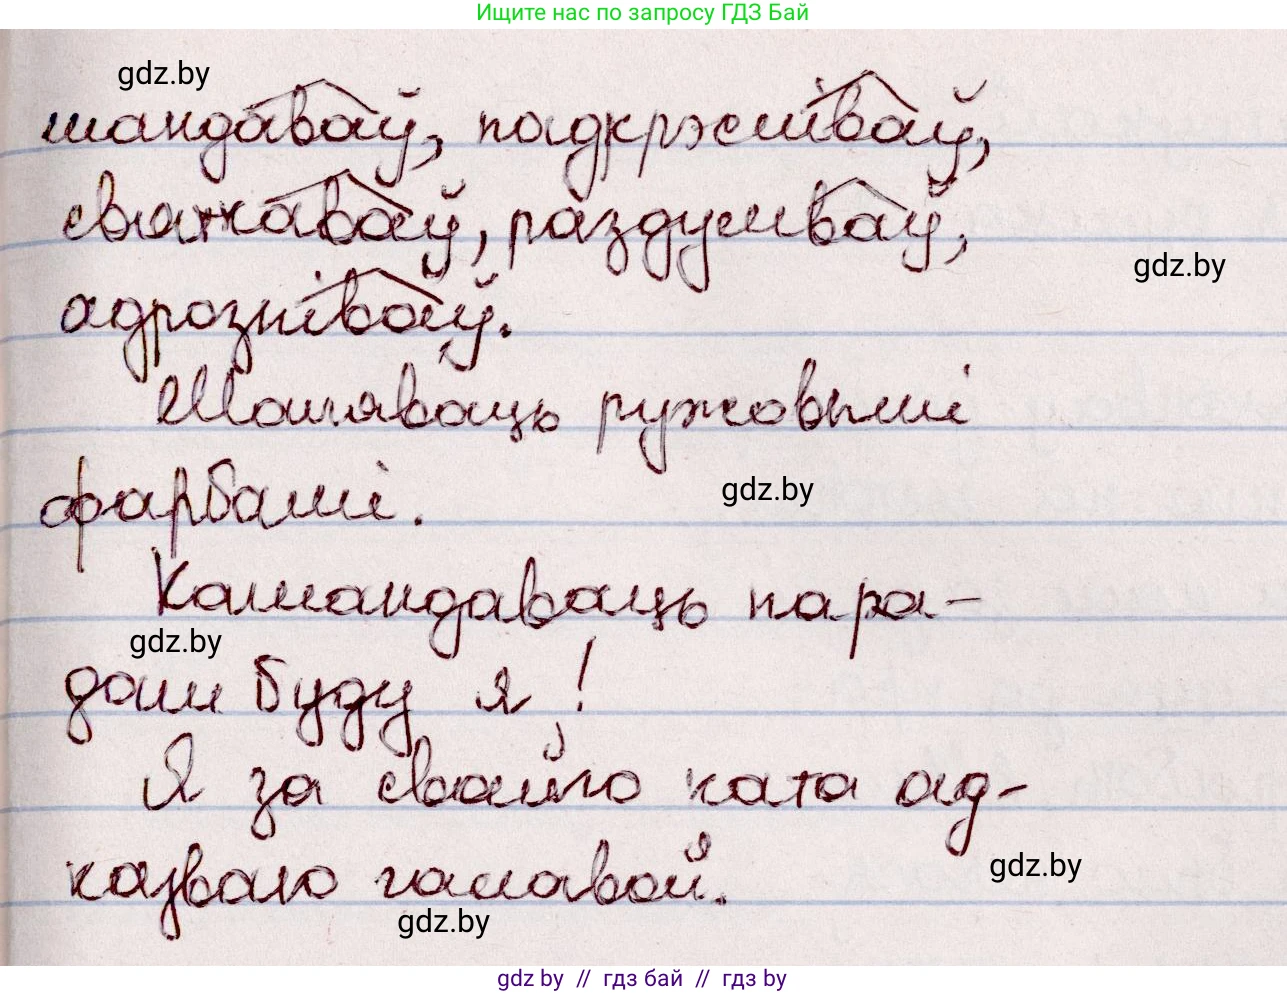 Ищите нас по запросу ГДЗ Бай
gdz.by
мандаваў, падкрэсліваў,
святкаваў, раздумваў,
gdz.by
адрозніваў.
Маляваць ружовымі
фарбамі.
gdz.by
Камандаваць пара-
gdz.by
дам буду я!
Я за свайго ката ад-
казваю галавой.
gdz.by
gdz.by
gdz by // гдз бай // гдз by